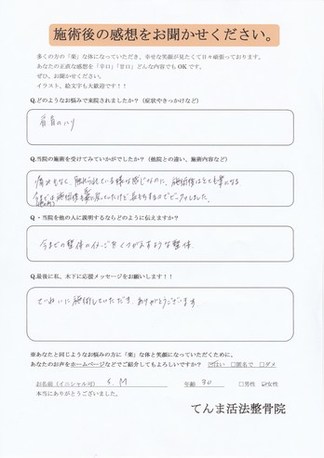 施術後の感想をお聞かせください。
多くの方の「楽」な体になっていただき、幸せな笑顔が見たくて日々頑張っております。
あなたの正直な感想を「辛口」「甘口」どんな内容でもOKです。
ぜひ、お聞かせください。
イラスト、絵文字も大歓迎です！！
Q.どのようなお悩みで来院されましたか？（症状やきっかけなど）
肩首のハリ
Q.当院の施術を受けてみていかがでしたか？（他院との違い、施術内容など）
痛みもなく、触れられている様な感じなのに、施術後はとても楽になる
Q.・当院を他の人に説明するならどのように伝えますか？
今までの整体のイメージをくつがえすような整体。
Q.最後に私、木下に応援メッセージをお願いします！！
てーねいに施術していただき、ありがとうございます
※あなたと同じようなお悩みの方に「楽」な体と笑顔になっていただくために。
あなたのお声をホームページなどでご紹介してもよろしいですか？ ☑はい □匿名で □ダメ
お名前（イニシャル可） S.M 年齢 30 □男性 ☑女性
本当にありがとうございました。
てんま活法整骨院